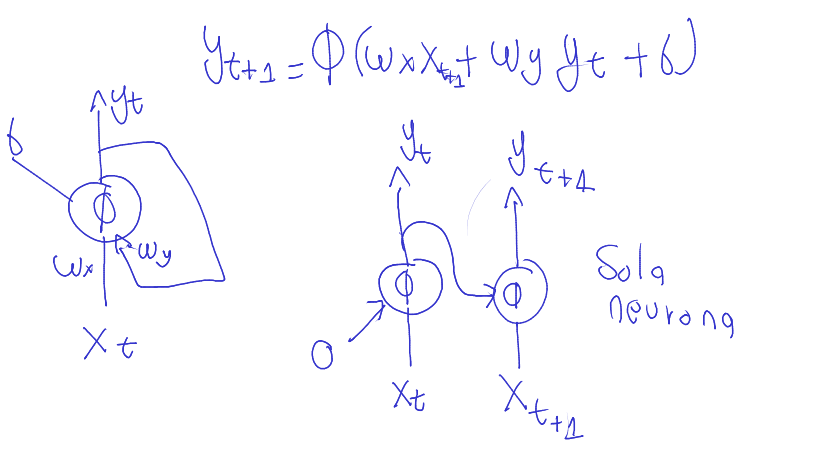 y_{t+1} = ϕ(ωx X_{t+1} + ωy y_t + b)
y_t
b
ϕ
ωx
ωy
X_t
y_t
y_{t+1}
ϕ
ϕ
0
X_t
X_{t+1}
Sola
neurona